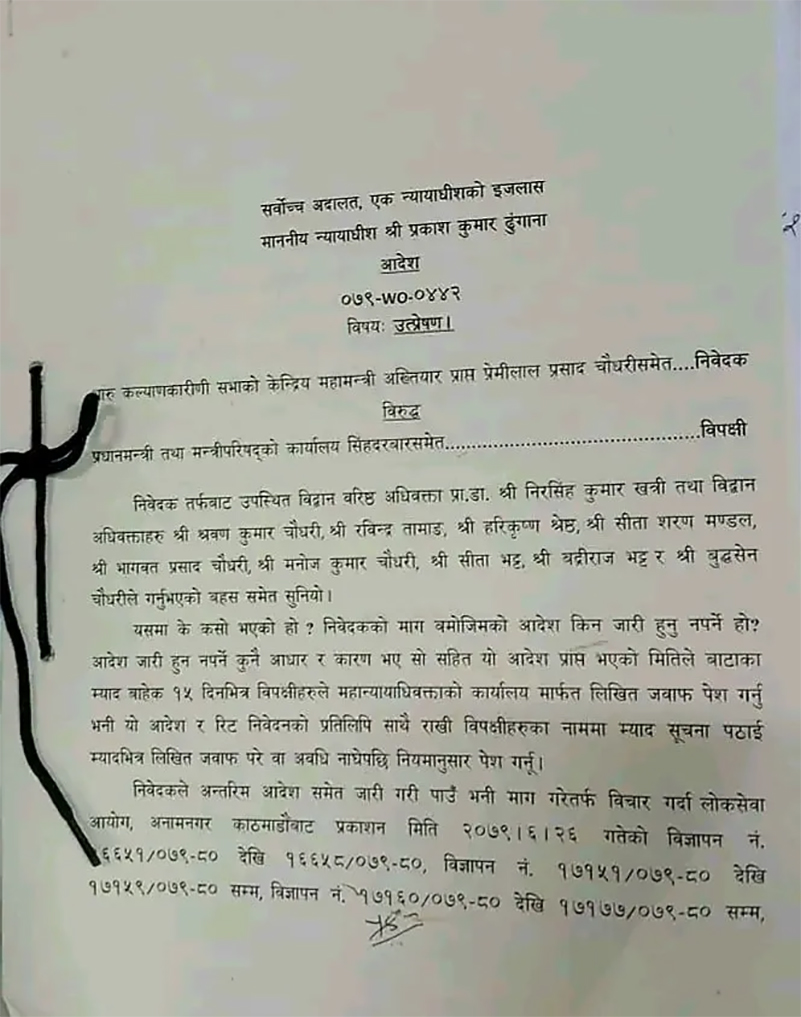 सर्वोच्च अदालत, एक न्यायाधीशको इजलास
माननीय न्यायाधीश श्री प्रकाश कुमार ढुंगाना
आदेश
०७९-WO-०४४२
विषयः उत्प्रेषण।
ारु कल्याणकारीणी सभाको केन्द्रिय महामन्त्री अख्तियार प्राप्त प्रेमीलाल प्रसाद चौधरीसमेत....निवेदक
विरुद्ध
प्रधानमन्त्री तथा मन्त्रीपरिषद्को कार्यालय सिंहदरबारसमेत..............................................विपक्षी
निवेदक तर्फबाट उपस्थित विद्वान वरिष्ठ अधिवक्ता प्रा.डा. श्री निरसिंह कुमार खत्री तथा विद्वान
अधिवक्ताहरु श्री श्रवण कुमार चौधरी, श्री रविन्द्र तामाङ, श्री हरिकृष्ण श्रेष्ठ, श्री सीता शरण मण्डल,
श्री भागवत प्रसाद चौधरी, श्री मनोज कुमार चौधरी, श्री सीता भट्ट, श्री बद्रीराज भट्ट र श्री बुद्धसेन
चौधरीले गर्नुभएको बहस समेत सुनियो।
यसमा के कसो भएको हो ? निवेदकको माग बमोजिमको आदेश किन जारी हुनु नपर्ने हो?
आदेश जारी हुन नपर्ने कुनै आधार र कारण भए सो सहित यो आदेश प्राप्त भएको मितिले बाटाका
म्याद बाहेक १५ दिनभित्र विपक्षीहरुले महान्यायाधिवक्ताको कार्यालय मार्फत लिखित जवाफ पेश गर्नु
भनी यो आदेश र रिट निवेदनको प्रतिलिपि साथै राखी विपक्षीहरुका नाममा म्याद सूचना पठाई
म्यादभित्र लिखित जवाफ परे वा अवधि नाघेपछि नियमानुसार पेश गर्नू।
निवेदकले अन्तरिम आदेश समेत जारी गरी पाउँ भनी माग गरेतर्फ विचार गर्दा लोकसेवा
आयोग, अनामनगर काठमाडौंबाट प्रकाशन मिति २०७९।६।२६ गतेको विज्ञापन नं.
१६६५१/०७९-८० देखि १६६५८/०७९-८०, विज्ञापन नं. १७१५१/०७९-८० देखि
१७१५९/०७९-८० सम्म, विज्ञापन नं. १७१६०/०७९-८० देखि १७१७७/०७९-८० सम्म,